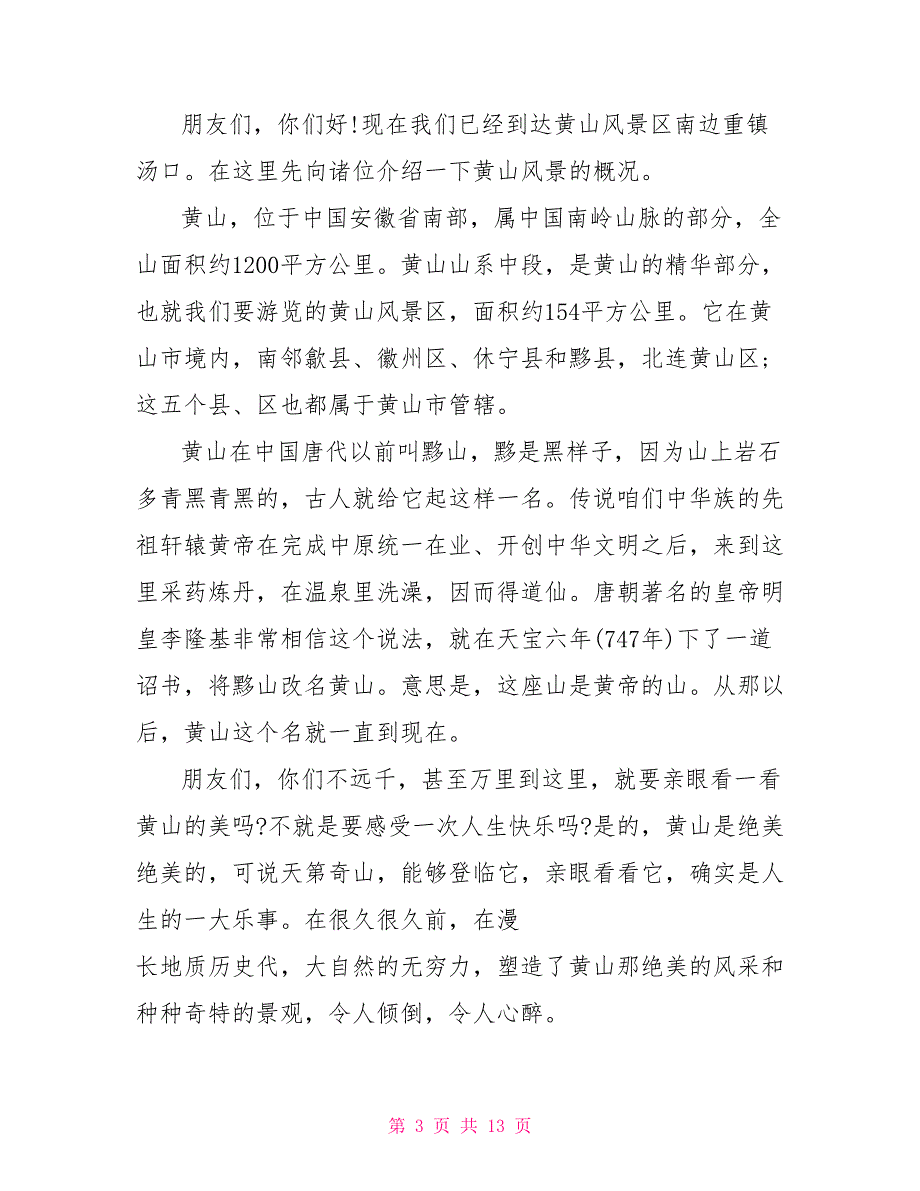 朋友们，你们好!现在我们已经到达黄山风景区南边重镇
汤口。在这里先向诸位介绍一下黄山风景的概况。
黄山，位于中国安徽省南部，属中国南岭山脉的部分，全
山面积约1200平方公里。黄山山系中段，是黄山的精华部分，
也就我们要游览的黄山风景区，面积约154平方公里。它在黄
山市境内，南邻歙县、徽州区、休宁县和黟县，北连黄山区;
这五个县、区也都属于黄山市管辖。
黄山在中国唐代以前叫黟山，黟是黑样子，因为山上岩石
多青黑青黑的，古人就给它起这样一名。传说咱们中华族的先
祖轩辕黄帝在完成中原统一在业、开创中华文明之后，来到这
里采药炼丹，在温泉里洗澡，因而得道仙。唐朝著名的皇帝明
皇李隆基非常相信这个说法，就在天宝六年(747年)下了一道
诏书，将黟山改名黄山。意思是，这座山是黄帝的山。从那以
后，黄山这个名就一直到现在。
朋友们，你们不远千，甚至万里到这里，就要亲眼看一看
黄山的美吗?不就是要感受一次人生快乐吗?是的，黄山是绝美
绝美的，可说天第奇山，能够登临它，亲眼看看它，确实是人
生的一大乐事。在很久很久前，在漫
长地质历史代，大自然的无穷力，塑造了黄山那绝美的风采和
种种奇特的景观，令人倾倒，令人心醉。
第 3 页 共 13 页